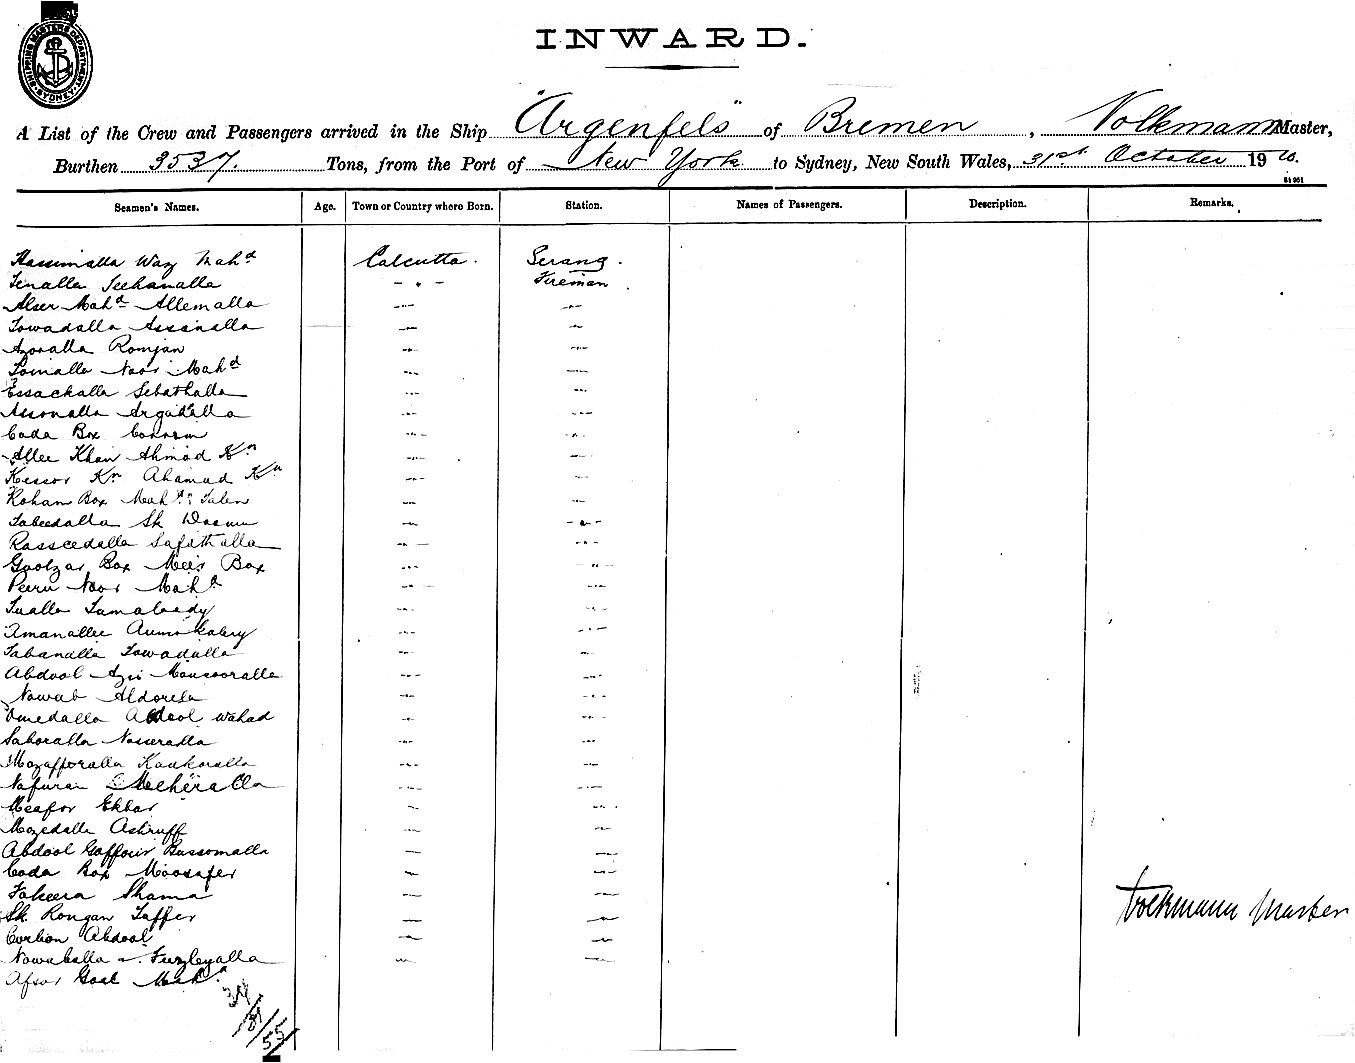 SHIPPING MASTERS DEPARTMENT SYDNEY
INWARD.
A List of the Crew and Passengers arrived in the Ship "Argenfels" of Bremen, Volkmann Master,
Burthen 3537. Tons, from the Port of New York to Sydney, New South Wales, 31st October 1910.
Seamen's Names. Age. Town or Country where Born. Station. Names of Passengers. Description. Remarks.
Hassimalla Wazy Mahd Calcutta. Serang.
Tenalla Seehanalla Fireman
Alser Mahd Allemalla
Towadalla Assanalla
Azoralla Romjan
Somalla Noor Mahd
Essackalla Sebathalla
Assonalla Argatalla
Coda Box
Allee Khan Ahmad Kn
Kessor Kn Ahamad Kn
Roham Box
Tabeedalla Sk
Rasseedalla Safathalla
Goolzar Box Meer Box
Peeru Noor Mahd
Tualla
Amanallee
Tabanalla Towadulla
Abdool Azi Monsooralla
Nowab
Omedalla Abdool Wahad
Saboralla Nosseralla
Mozafforalla
Nafuran
Meafor Ekbar
Mozedalla Ashruff
Abdool Gaffoor Bussomalla
Coda Box Moosafer
Fakeera Shama
Sk. Rongan Taffer
Abdool
Nowaballa Fuzleyalla
Afsar Goal Mahd
Volkmann Master
34
55